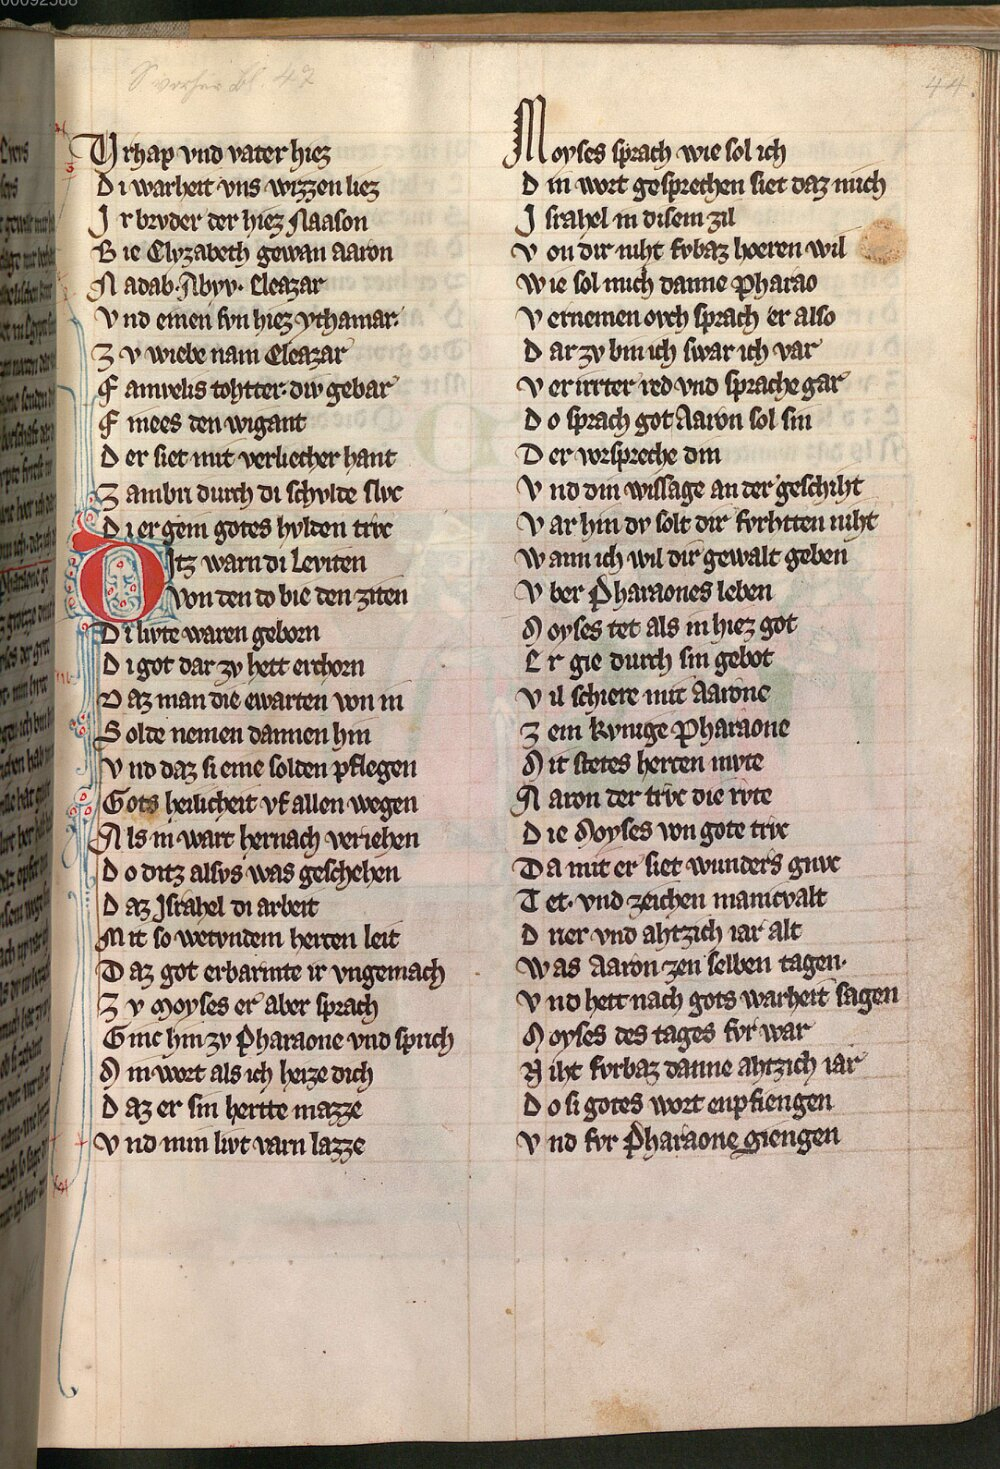 00092588
S vorher Bl. 47
44.
Vrhap vnd vater hiez
Di warheit vns wizzen liez
Ir brvder der hiez Naason
Bie Elyzabeth gewan aaron
Nadab. Abyv. Eleazar
Vnd einen svn hiez ythamar.
Zv wiebe nam Eleazar
Famvelis tohtter. div gebar
Finees den wigant
Der siet mit verliecher hant
Zambri durch di schvlde slvc
Di er gein gotes hvlden trvc
Ditz warn di Leviten
Von den do bie den ziten
Di livte waren geborn
Di got dar zv hett erchorn
Daz man die ewarten von in
Solde nemen dannen hin
Vnd daz si eine solden pflegen
Gots heilicheit vf allen wegen
Als in wart hernach veriehen
Do ditz alsvs was geschehen
Daz Israhel di arbeit
Mit so wetvndem hercen leit
Daz got erbarmte ir vngemach
Zv Moyses er aber sprach
Ginc hin zv Pharaone vnd sprich
Min wort als ich heize dich
Daz er sin hertte mazze
Vnd min livt varn lazze
Moyses sprach wie sol ich
Din wort gesprechen siet daz mich
Israhel in disem zil
Von dir niht fvbaz hoeren wil
Wie sol mich danne Pharao
Vernemen ovch sprach er also
Dar zv bin ich swar ich var
Verirrter red vnd sprache gar
Do sprach got Aaron sol sin
Der vorspreche din
Vnd din wissage an der geschiht
Var hin dv solt dir fvrhtten niht
Wann ich wil dir gewalt geben
Vber Pharaones leben
Moyses tet als in hiez got
Er gie durch sin gebot
Vil schiere mit Aarone
Zem kvnige Pharaone
Mit stetes hercen mvte
Aaron der trvc die rvte
Die Moyses von gote trvc
Da mit er siet wunders gnvc
Tet. vnd zeichen manicvalt
Drier vnd ahtzich iar alt
Was Aaron zen selben tagen.
Vnd hett nach gots warheit sagen
Moyses des tages fvr war
Niht fvrbaz danne ahtzich iar
Do si gotes wort enpfiengen
Vnd fvr Pharaone giengen